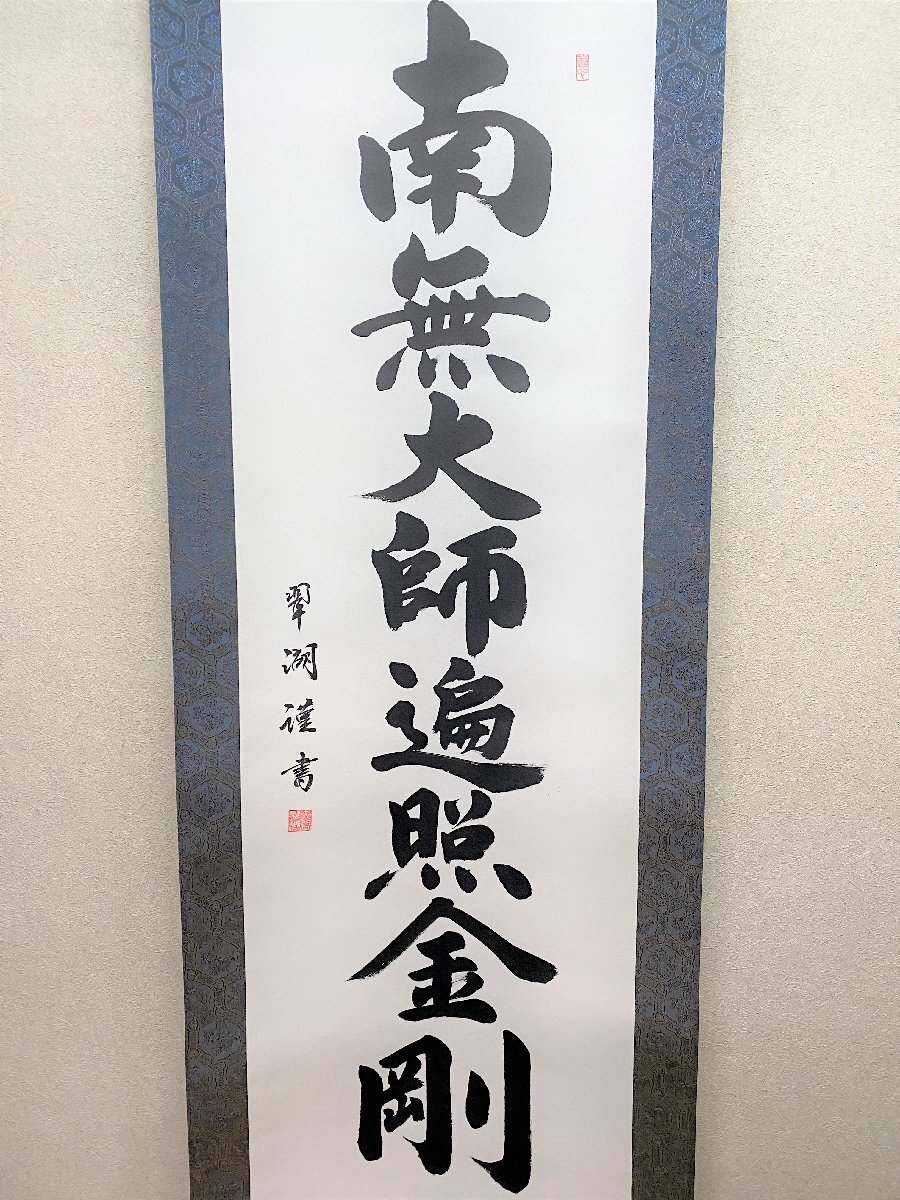 南無大師遍照金剛
翠湖謹書